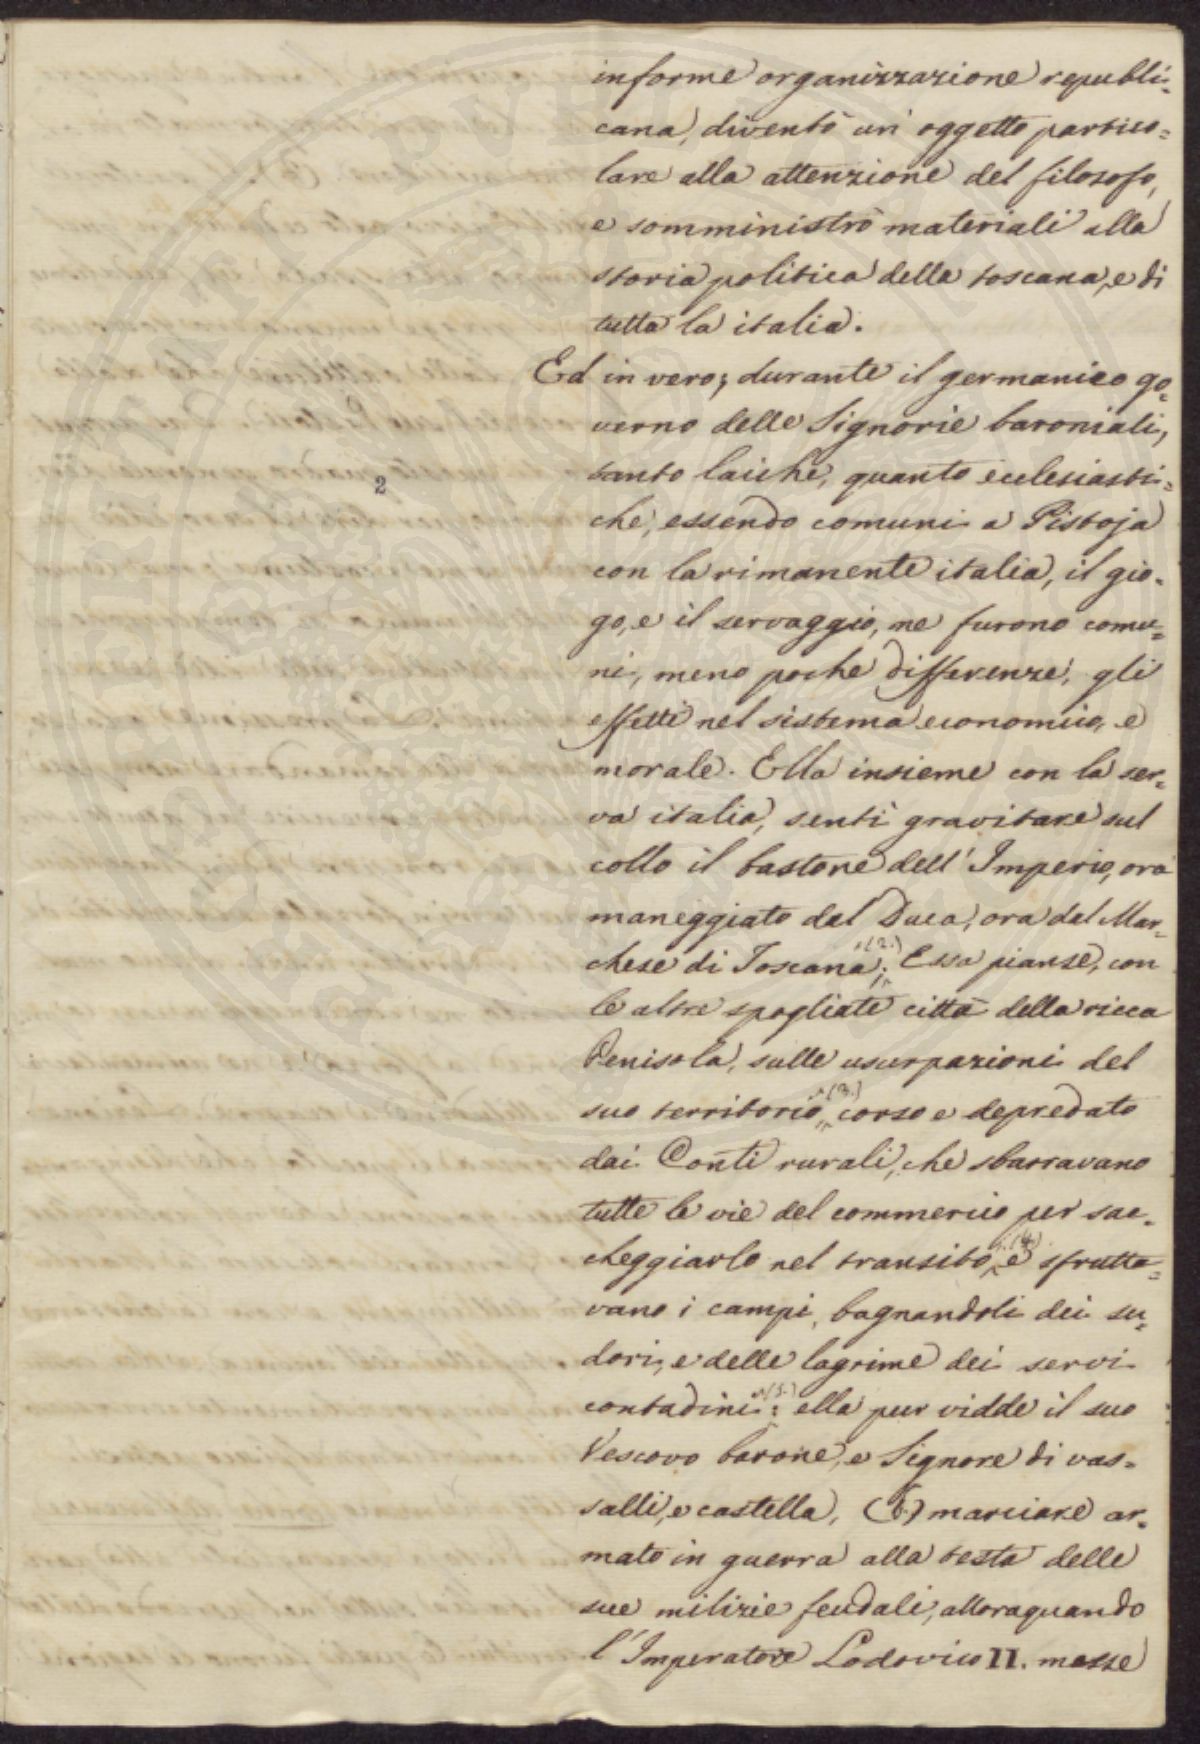 informe organizzazione republi=
cana, diventò un oggetto partico=
lare alla attenzione del filosofo,
e somministrò materiali alla
storia politica della toscana, e di
tutta la italia.
Ed in vero; durante il germanico go=
verno delle Signorie baroniali,
2
tanto laiche, quanto ecclesiasti=
che, essendo comuni a Pistoja
con la rimanente italia, il gio=
go, e il servaggio, ne furono comu=
ni, meno poche differenze, gli
effetti nel sistema economico, e
morale. Ella insieme con la ser=
va italia, sentì gravitare sul
collo il bastone dell'Imperio, ora
maneggiato dal Duca, ora dal Mar=
chese di Toscana; (2.) Essa pianse, con
le altre spogliate città della ricca
Penisola, sulle usurpazioni del
suo territorio, (3.) corso e depredato
dai Conti rurali, che sbarravano
tutte le vie del commercio per sac=
cheggiarlo nel transito, (4.) e sfrutta=
vano i campi, bagnandoli dei su=
dori, e delle lagrime dei servi
contadini (5.) : ella pur vidde il suo
Vescovo barone, e Signore di vas=
salli, e castella, (6.) marciare ar=
mato in guerra alla testa delle
sue milizie feudali, alloraquando
l'Imperatore Lodovico II. messe